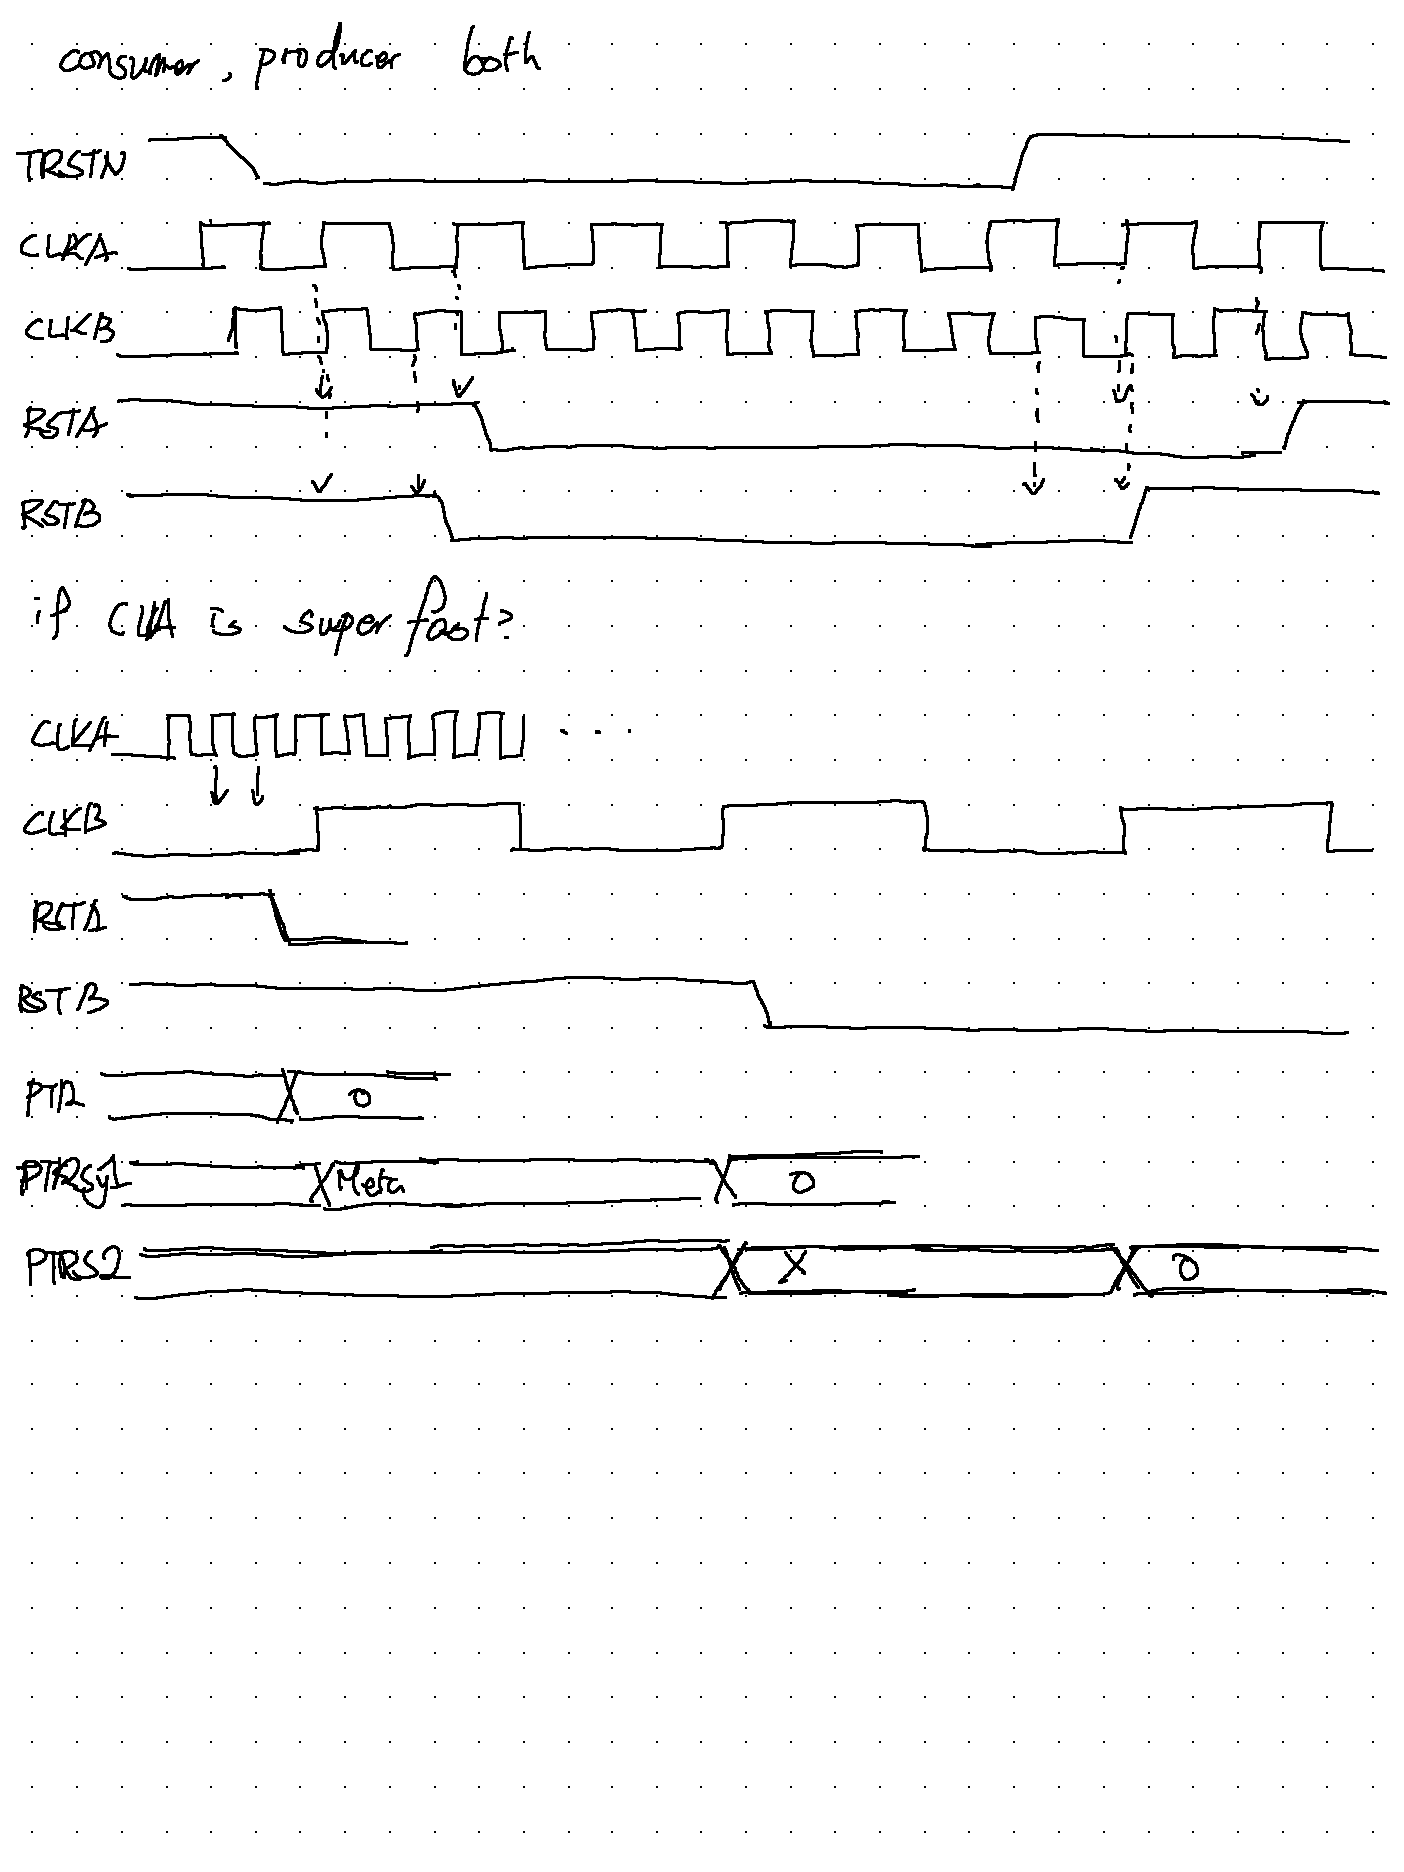 consumer, producer both
TRSTN
CLKA
CLKB
RSTA
RSTB
if CLKA is super fast?
CLKA
CLKB
RSTA
RSTB
PTR
0
PTRSy1
Meta
0
PTRS2
X
0